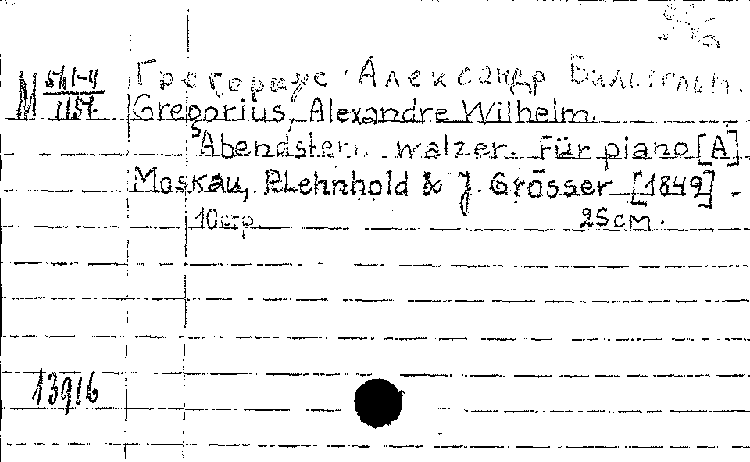 М 561-4
1157
Грегориус Александр Вильгельм.
Gregorius, Alexandre Wilhelm.
Abendstern. Walzer. Für piano [A]
Moskau, P.Lehnhold & J. Grösser [1849] -
10 стр. 25 см.
13916